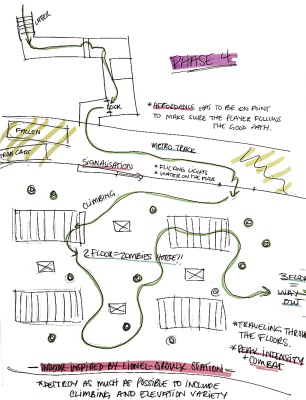 PHASE 4
LOCK
* AFFORDANCE HAS TO BE ON POINT
TO MAKE SURE THE PLAYER FOLLOWS
THE GOOD PATH.
FALLEN
TRAM CARS
METRO TRACK
SIGNALISATION
* FLICKING LIGHTS
* WATER ON THE FLOOR
CLIMBING
2 FLOOR = ZOMBIES HORDE!!
3 FLOOR
WAY
OUT
* TRAVELING THROU
THE FLOORS.
* PEAK INTENSITY
+ COMBAT
INDOOR INSPIRED BY LIONEL-GROULX STATION
* DESTROY AS MUCH AS POSSIBLE TO INCLUDE
CLIMBING AND ELEVATION VARIETY